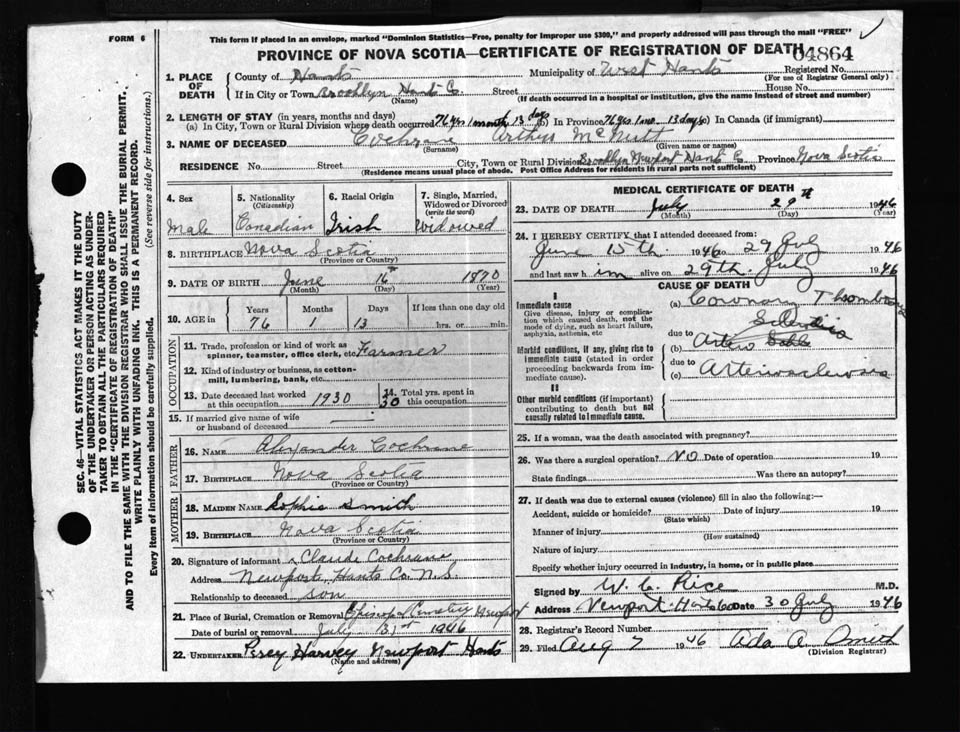 FORM 6
This form if placed in an envelope, marked "Dominion Statistics—Free, penalty for improper use $300," and properly addressed will pass through the mail "FREE"
PROVINCE OF NOVA SCOTIA—CERTIFICATE OF REGISTRATION OF DEATH
04864
1. PLACE OF DEATH
County of Hants Municipality of West Hants Registered No.
(For use of Registrar General only)
If in City or Town Brooklyn Hants Co. Street House No.
(Name) (If death occurred in a hospital or institution, give the name instead of street and number)
2. LENGTH OF STAY (in years, months and days)
(a) In City, Town or Rural Division where death occurred 76 yrs 1 month 13 days (b) In Province 76 yrs 1 mo. 13 days (c) In Canada (if immigrant)
3. NAME OF DECEASED Cochrane Arthur McNutt
(Surname) (Given name or names)
RESIDENCE No. Street City, Town or Rural Division Brooklyn Newport Hants Co Province Nova Scotia
(Residence means usual place of abode. Post Office Address for residents in rural parts not sufficient)
4. Sex
Male
5. Nationality
(Citizenship)
Canadian
6. Racial Origin
Irish
7. Single, Married, Widowed or Divorced
(write the word)
Widowed
8. BIRTHPLACE Nova Scotia
(Province or Country)
9. DATE OF BIRTH June 16th 1870
(Month) (Day) (Year)
10. AGE in
Years Months Days If less than one day old
76 1 13 hrs. or min.
OCCUPATION
11. Trade, profession or kind of work as spinner, teamster, office clerk, etc. Farmer
12. Kind of industry or business, as cotton-mill, lumbering, bank, etc.
13. Date deceased last worked at this occupation 1930
14. Total yrs. spent in this occupation 30
15. If married give name of wife or husband of deceased —
FATHER
16. NAME Alexander Cochrane
17. BIRTHPLACE Nova Scotia
(Province or Country)
MOTHER
18. MAIDEN NAME Sophie Smith
19. BIRTHPLACE Nova Scotia
(Province or Country)
20. Signature of informant Claude Cochrane
Address Newport, Hants Co. N.S.
Relationship to deceased son
21. Place of Burial, Cremation or Removal Episcopal Cemetery Newport
Date of burial or removal July 31st 1946
22. UNDERTAKER Percy Harvey Newport Hants
(Name and address)
MEDICAL CERTIFICATE OF DEATH
23. DATE OF DEATH July 29th 1946
(Month) (Day) (Year)
24. I HEREBY CERTIFY that I attended deceased from:
June 15th. 1946 to 29 July 1946
and last saw him alive on 29th. July 1946
CAUSE OF DEATH
I
Immediate cause
Give disease, injury or complication which caused death, not the mode of dying, such as heart failure, asphyxia, asthenia, etc
(a) Coronary Thrombosis
due to
Morbid conditions, if any, giving rise to immediate cause (stated in order proceeding backwards from immediate cause).
(b) Arterio
due to
(c) Arteriosclerosis
II
Other morbid conditions (if important) contributing to death but not causally related to immediate cause.
25. If a woman, was the death associated with pregnancy?
26. Was there a surgical operation? NO Date of operation 19
State findings Was there an autopsy?
27. If death was due to external causes (violence) fill in also the following:—
Accident, suicide or homicide? Date of injury 19
(State which)
Manner of injury
(How sustained)
Nature of injury
Specify whether injury occurred in industry, in home, or in public place
Signed by W. C. Rice M.D.
Address Newport Hants Co Date 30 July 1946
28. Registrar's Record Number
29. Filed Aug 7 1946 Ada A. Smith
(Division Registrar)
SEC. 46—VITAL STATISTICS ACT MAKES IT THE DUTY
OF THE UNDERTAKER OR PERSON ACTING AS UNDER-
TAKER TO OBTAIN ALL THE PARTICULARS REQUIRED
IN THE "CERTIFICATE OF REGISTRATION OF DEATH"
AND TO FILE THE SAME WITH THE DIVISION REGISTRAR WHO SHALL ISSUE THE BURIAL PERMIT.
WRITE PLAINLY WITH UNFADING INK. THIS IS A PERMANENT RECORD.
Every item of information should be carefully supplied. (See reverse side for instructions.)